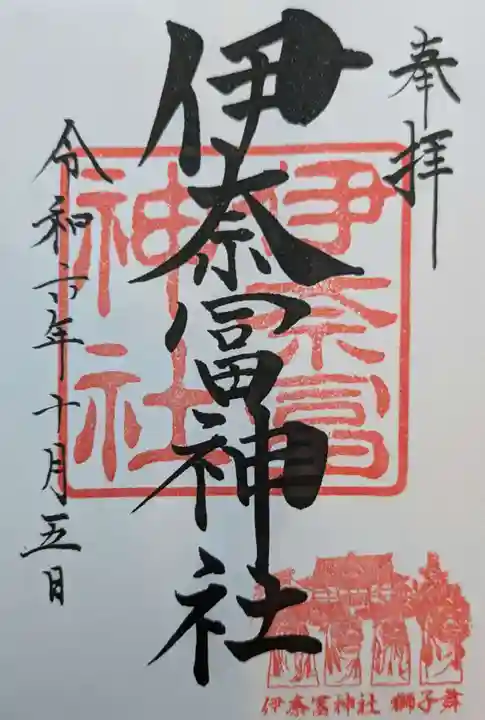 奉拝
伊奈冨神社
伊奈冨
神社
令和六年十月五日
伊奈冨神社 獅子舞